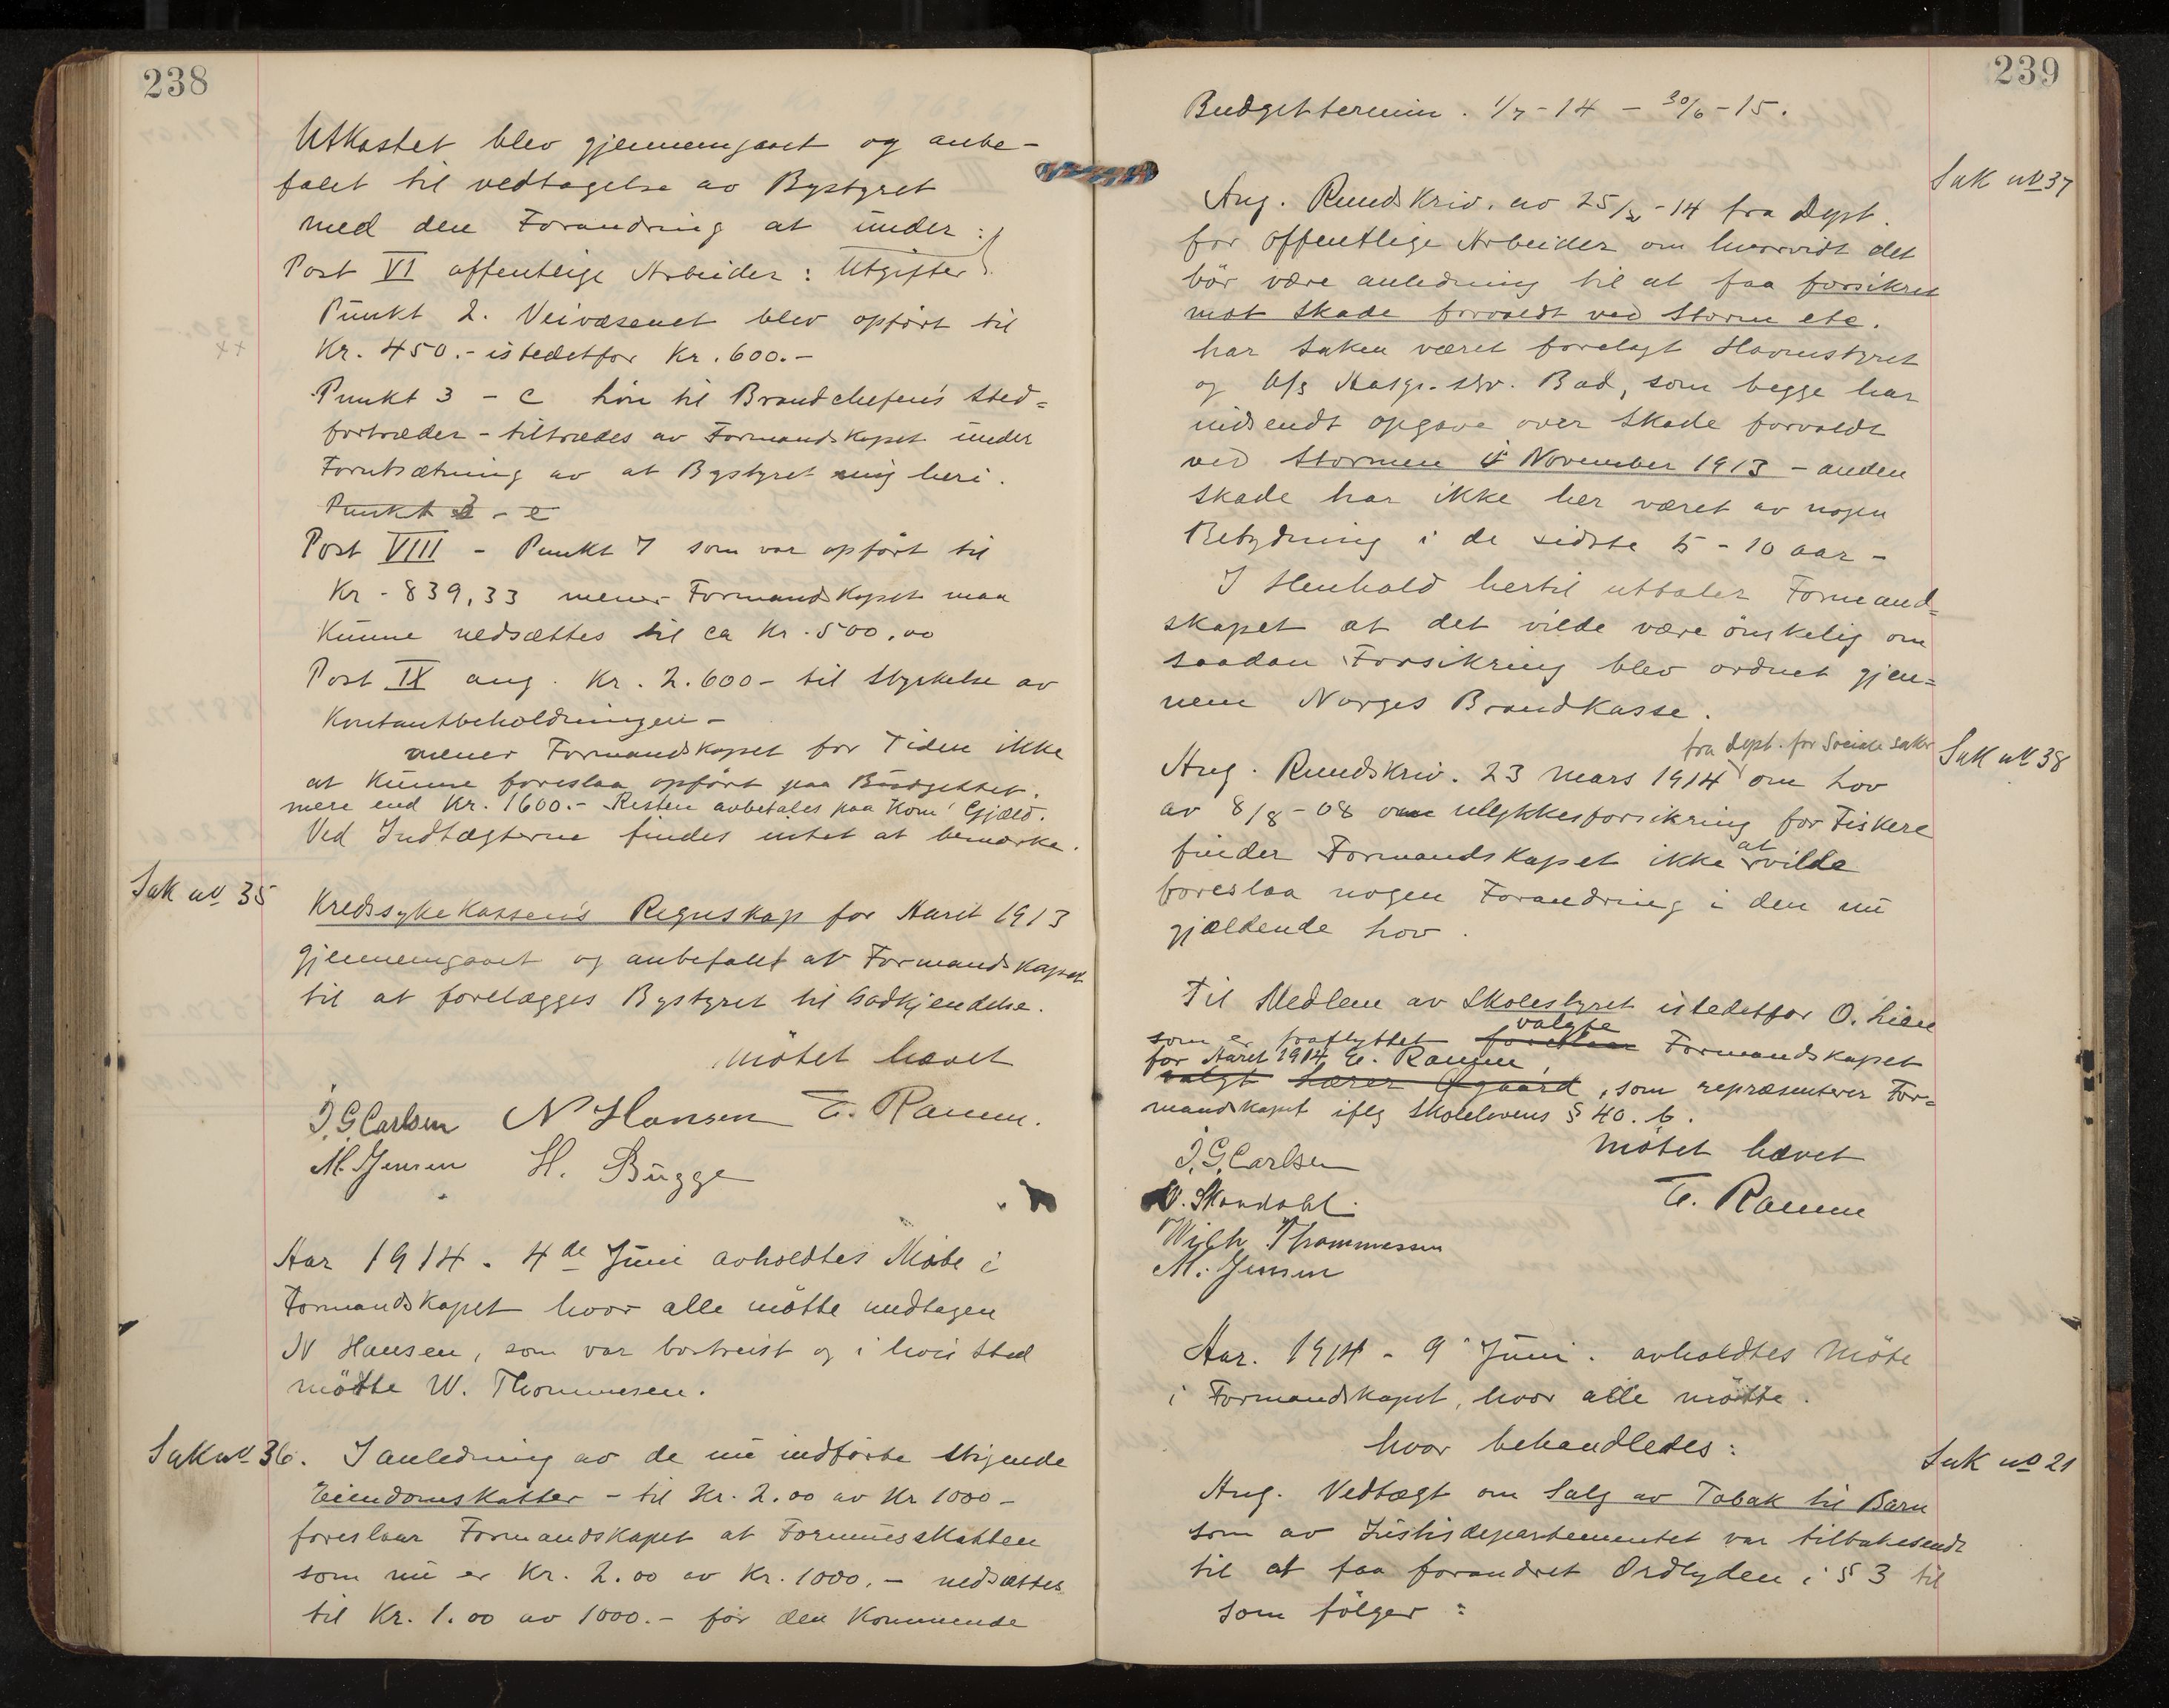 238
Utkastet blev gjennemgaaet og anbe-
falet til vedtagelse av Bystyret
med den Forandring at under :
Post VI offentlige Arbeider : Utgifter
Punkt 2. Veivæsenet blev opført til
Kr. 450.- istedetfor Kr. 600.-
Punkt 3 - c løn til Brandchefens Sted=
fortræder - tiltrædes av Formandskapet under
Forutsætning av at Bystyret enig heri.
Punkt 3 - e
Post VIII - Punkt 7 som var opført til
Kr - 839,33 mener Formandskapet maa
kunne nedsættes til ca Kr. 500,00
Post IX ang. Kr. 2.600- til Styrkelse av
Kontantbeholdningen -
mener Formandskapet for Tiden ikke
at kunne foreslaa opført paa Budgettet.
mere end Kr. 1600.- Resten avbetales paa Kom' Gjæld.
Ved Indtægterne findes intet at bemærke.
Sak no 35
Kredssykekassens Regnskap for Aaret 1913
gjennemgaaet og anbefalet av Formandskapet
til at forelægges Bystyret til Godkjendelse.
Møtet hævet
J. G. Carlsen N Hansen E. Ramm.
M. Jensen H. Bugge
Aar 1914 - 4de Juni avholdtes Møte i
Formandskapet hvor alle møtte undtagen
N Hansen, som var bortreist og i hvis Sted
møtte W. Thommesen.
Sak no 36. I anledning av de nu indførte stigende
Eiendomskatter - til Kr. 2.00 av Kr 1000 -
foreslaar Formandskapet at Formuesskatten
som nu er Kr. 2.00 av Kr. 1000.- nedsættes
til Kr. 1.00 av 1000.- for den kommende
239
Budgettermin. 1/7-14 - 30/6-15.
Sak no 37
Ang. Rundskriv. av 25/3-14 fra Dept.
for offentlige Arbeider om hvorvidt det
bør være anledning til at faa forsikret
mot Skade forvoldt ved Storm etc.
har Saken været forelagt Havnestyret
og A/S Aasgr. str. Bad, som begge har
indsendt opgave over Skade forvoldt
ved Stormen i November 1913 - anden
Skade har ikke her været av nogen
Betydning i de sidste 5 - 10 aar -
I Henhold hertil uttaler Formand=
skapet at det vilde være ønskelig om
saadan Forsikring blev ordnet gjen=
nem Norges Brandkasse.
fra Dept. for Sociale saker
Sak no 38
Ang. Rundskriv. 23 mars 1914 om Lov
av 8/8-08 om ulykkesforsikring for Fiskere
finder Formandskapet ikke at vilde
foreslaa nogen Forandring i den nu
gjældende Lov.
Til Medlem av Skolestyret istedetfor O. Lien
som er fraflyttet valgte Formandskapet
for Aaret 1914 E. Ramm,
valgt Lærer Øgaard, som repræsenterer For=
mandskapet iflg Skolelovens § 40. b.
Møtet hævet
J. G. Carlsen
E. Ramm
Wilh Thommessen
M. Jensen
Aar. 1914 - 9 Juni. avholdtes Møte
i Formandskapet, hvor alle møtte.
hvor behandledes:
Sak no 21
Ang. Vedtægt om Salg av Tobak til Barn
som av Justisdepartementet var tilbakesendt
til at faa forandret Ordlyden i § 3 til
som følger :